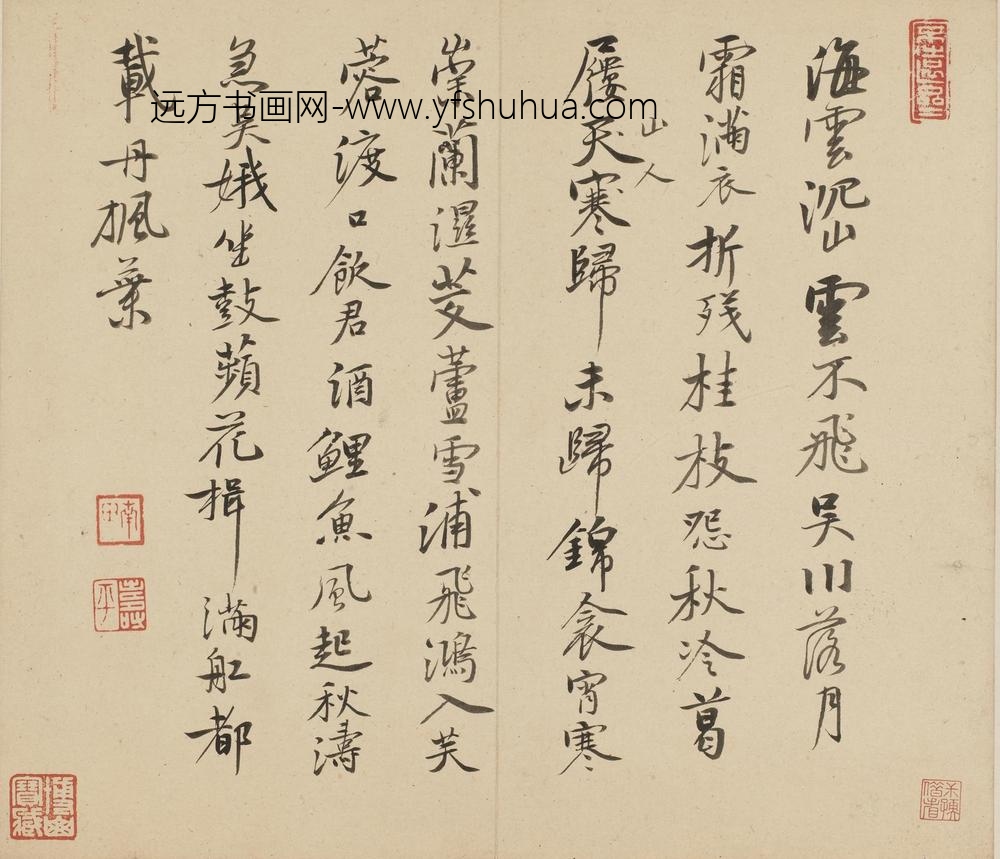 海雲沉山雲不飛吳川落月
霜滿衣折残桂枝怨秋冷葛
屨天寒歸未歸錦衾宵寒
山人
崇蘭濕芰蘆雪浦飛鴻入芙
蓉渡口飲君酒鯉魚風起秋濤
急吳娥坐鼓蘋花楫滿舡都
載丹楓葉
南田
壽平
远方书画网-www.yfshuhua.com